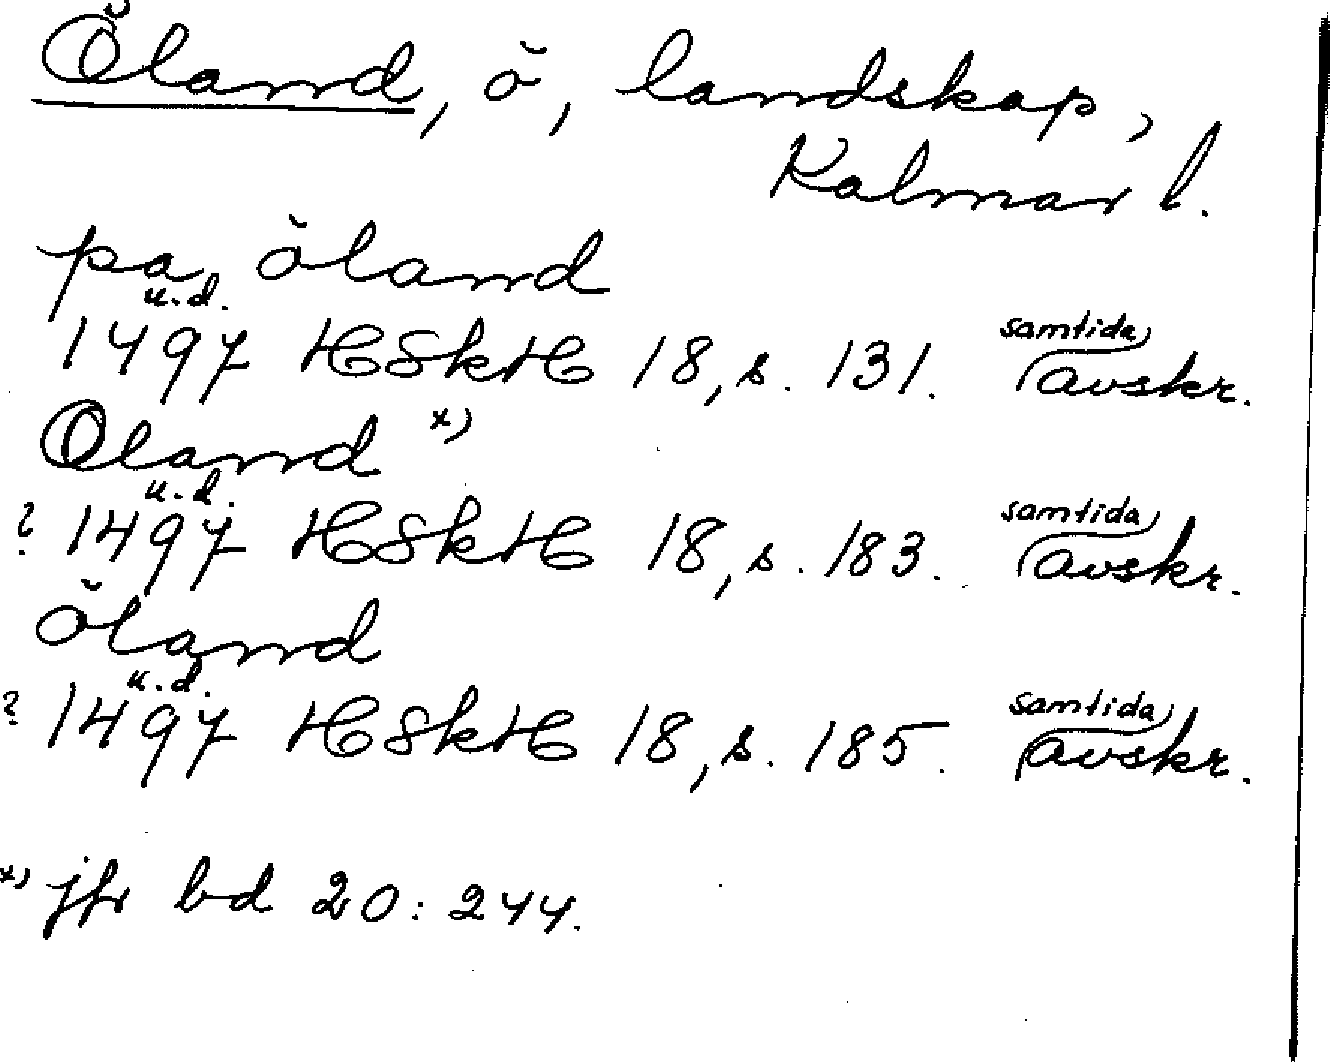 Öland, ö, landskap,
Kalmar l.
pa öland
u.d.
1497 HSkH 18, s. 131. samtida avskr.
Oland x)
u.d.
? 1497 HSkH 18, s. 183. samtida avskr.
öland
u.d.
? 1497 HSkH 18, s. 185. samtida avskr.
x) jfr bd 20: 244.